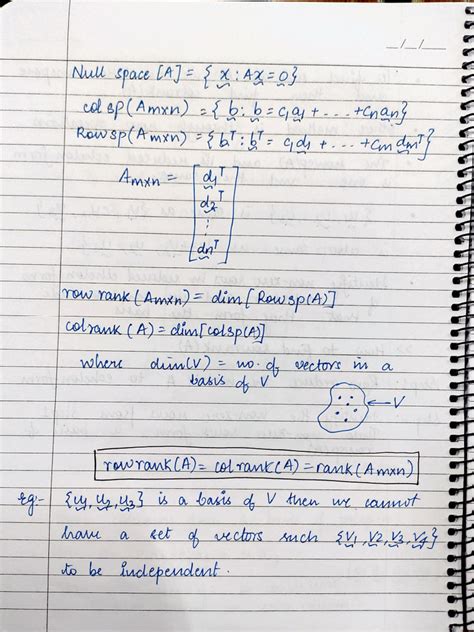 __/__/__
Null space [A] = { x : Ax = 0}
col sp(Am×n) = { b : b = c1a1 + ... + cnan}
Row sp(Am×n) = { bᵀ : bᵀ = c1d1 + ... + cm dmᵀ}
Am×n = [ d1ᵀ
d2ᵀ
⋮
dnᵀ ]
row rank (Am×n) = dim [Row sp(A)]
col rank (A) = dim [col sp(A)]
where dim(V) = no. of vectors in a
basis of V
V
row rank(A) = col rank(A) = rank(Am×n)
Eg:- {u1, u2, u3} is a basis of V then we cannot
have a set of vectors such {v1, v2, v3, v4}
to be independent.